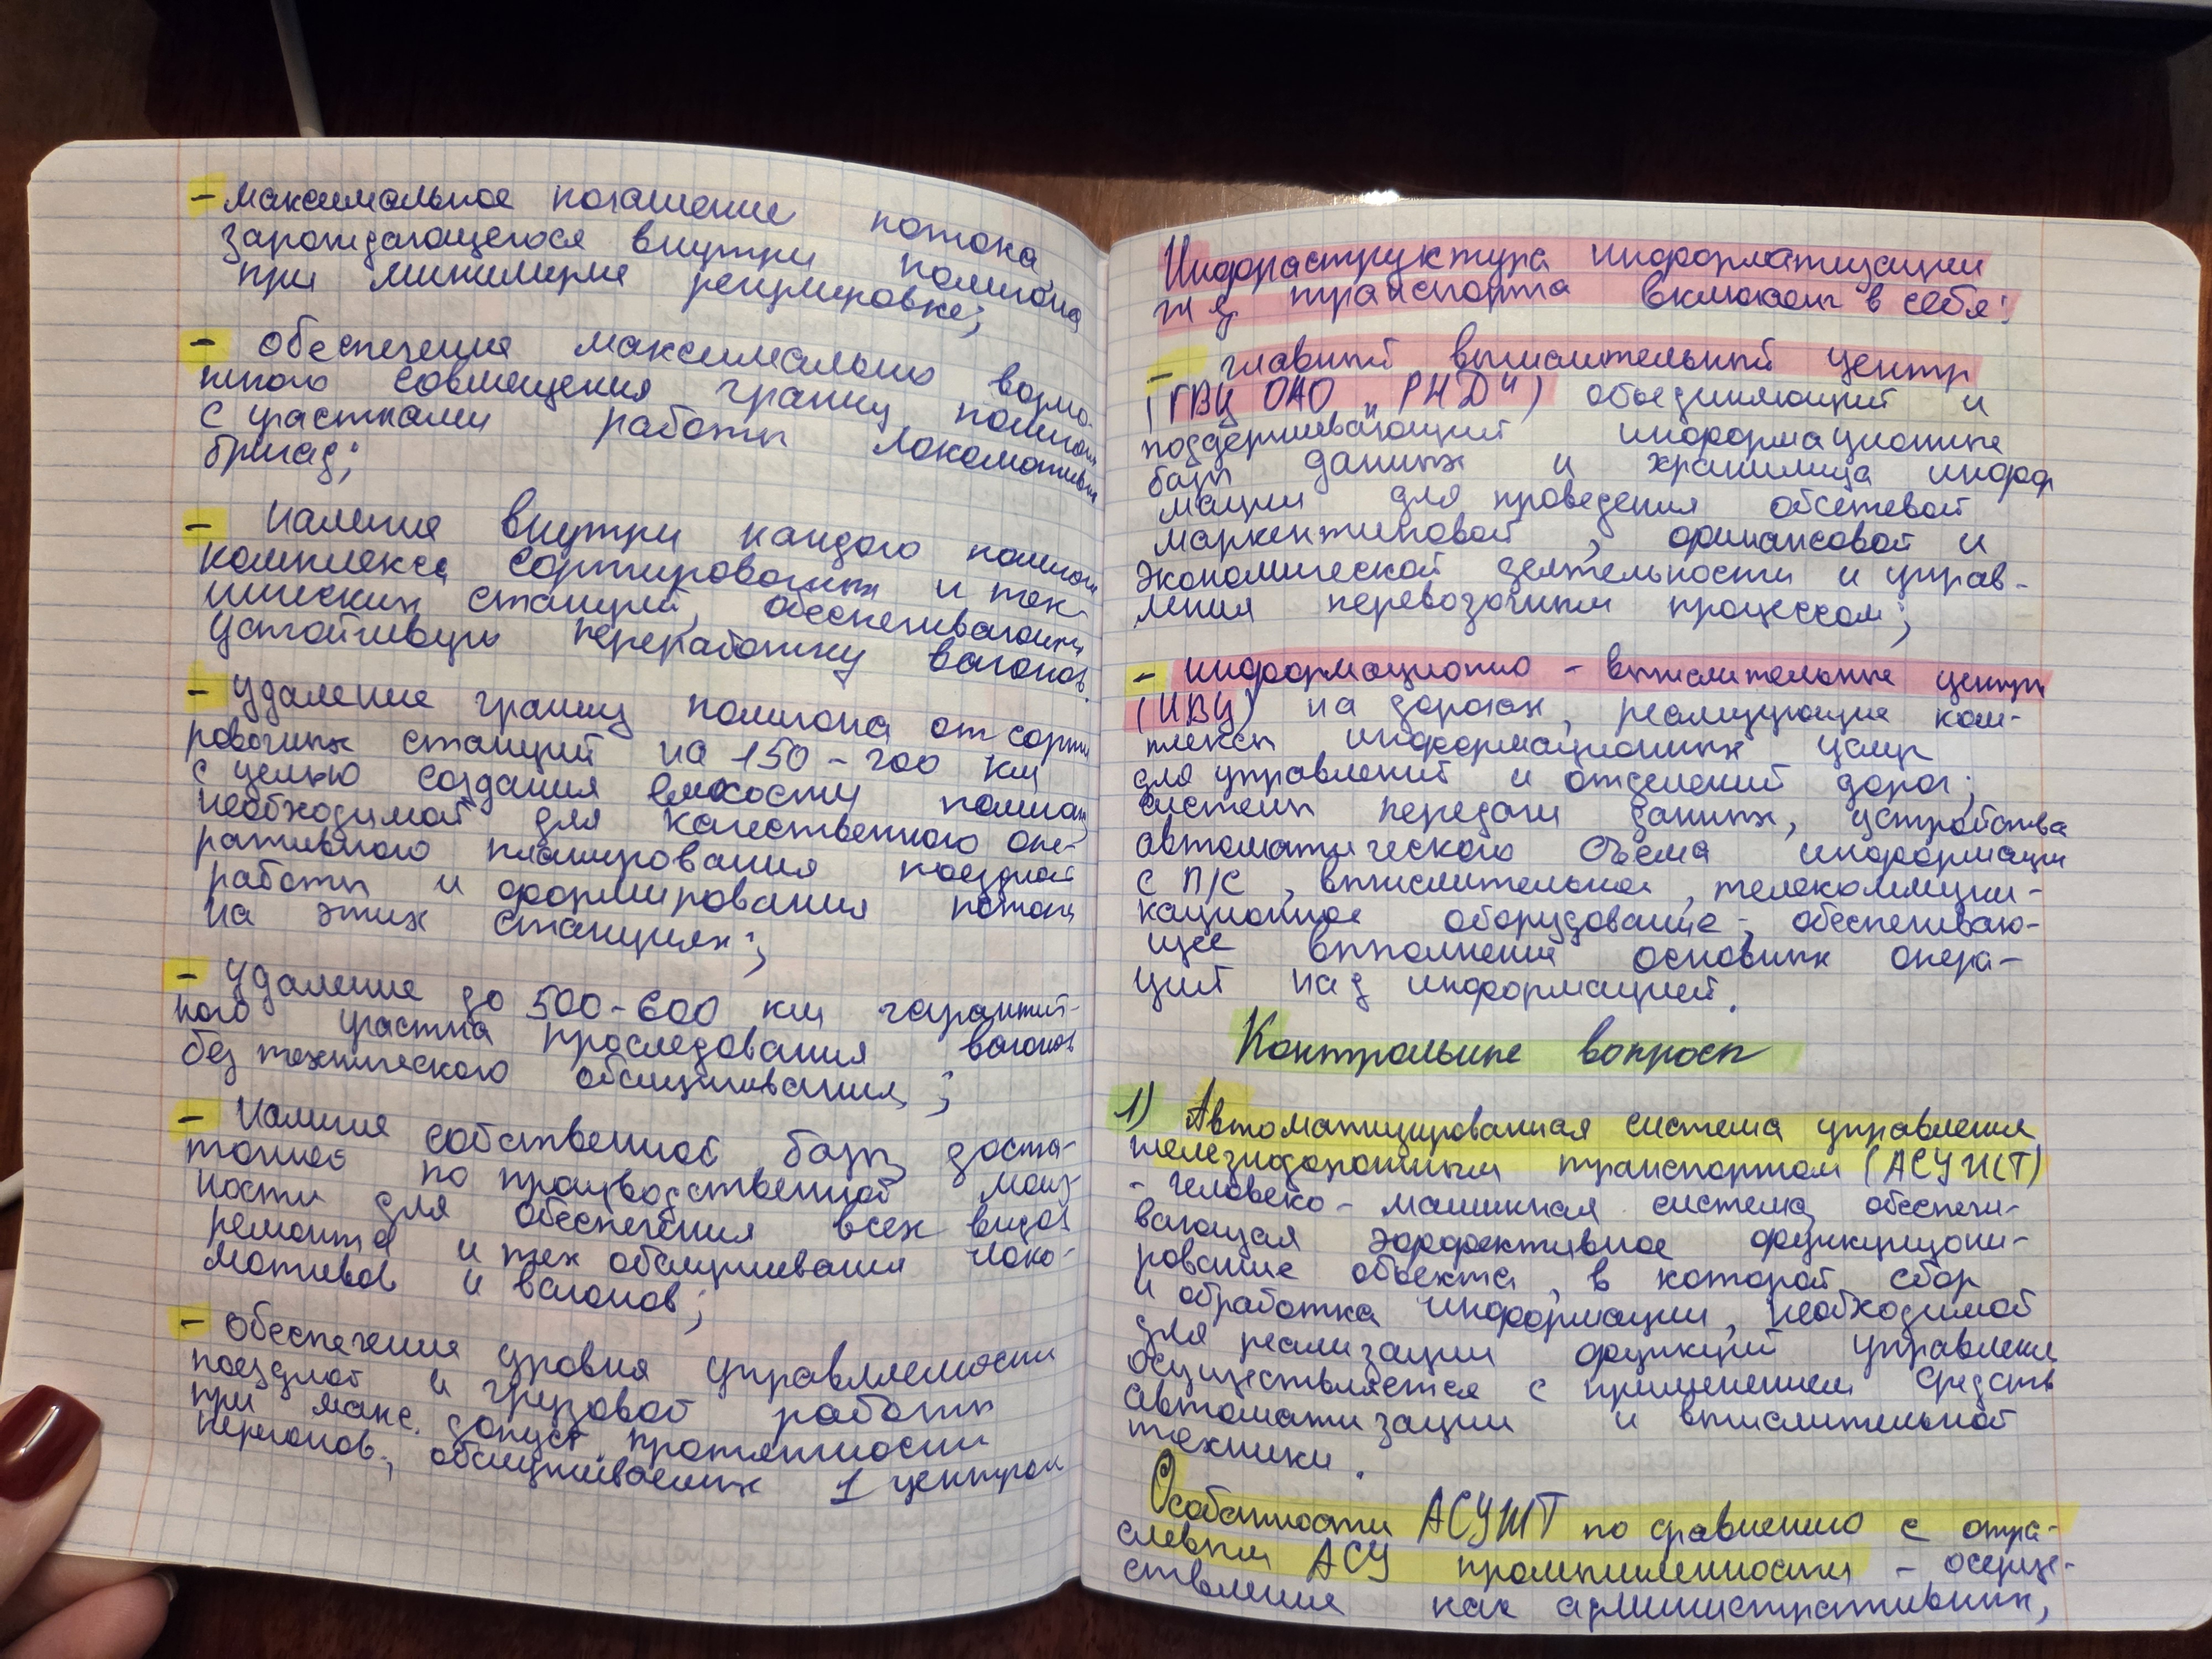 - максимальное погашение потока,
зарождающегося внутри полигона
при минимуме регулировке;
- обеспечения максимально возмо-
жного совмещения границ полигона
с участками работы локомотивн
бригад;
- наличия внутри каждого полигон
комплекса сортировочных и тех-
нических станций, обеспечивающи
устойчивую переработку вагонов.
- удаление границ полигона от сорти
ровочных станций на 150-200 км
с целью создания ёмкости полигон
необходимой для качественного опе-
ративного планирования поездной
работы и формирования поток
на этих станциях;
- удаление до 500-600 км гарантий-
ного участка проследования вагонов
без технического обслуживания;
- наличия собственной базы, доста-
точной по производственной мощ-
ности для обеспечения всех видов
ремонта и тех обслуживания локо-
мотивов и вагонов;
- обеспечения уровня управляемости
поездной и грузовой работы
при макс. допуст протяжности
перегонов, обслуживаемых 1 центром
Инфраструктура информатизации
жд транспорта включает в себя:
- главный вычислительный центр
(ГВЦ ОАО "РЖД") объединяющий и
поддерживающий информационные
базы данных и хранилища инфор
мации для проведения обсетевой
маркентиновой, финансовой и
экономической деятельности и управ-
ления перевозочным процессом;
- информационно-вычислительные центры
(ИВЦ) на дорогах, реализующие ком-
плексы информационных услуг
для управлений и отделений дорог;
системы передачи данных, устройства
автоматического съёма информации
с П/С, вычислительное, телекоммуни-
кационное оборудование, обеспечиваю-
щее выполнение основных опера-
ций над информацией.
Контрольные вопросы
1) Автоматизированная система управления
железнодорожным транспортом (АСУЖТ)
- человеко-машинная система, обеспечи-
вающая эффективное функциони-
рование объекта, в которой сбор
и обработка информации, необходимой
для реализации функций управления
осуществляется с применением средств
автоматизации и вычислительной
техники.
Особенности АСУЖТ по сравнению с отра-
слевым АСУ промышленности - осуще-
ствление как административных,